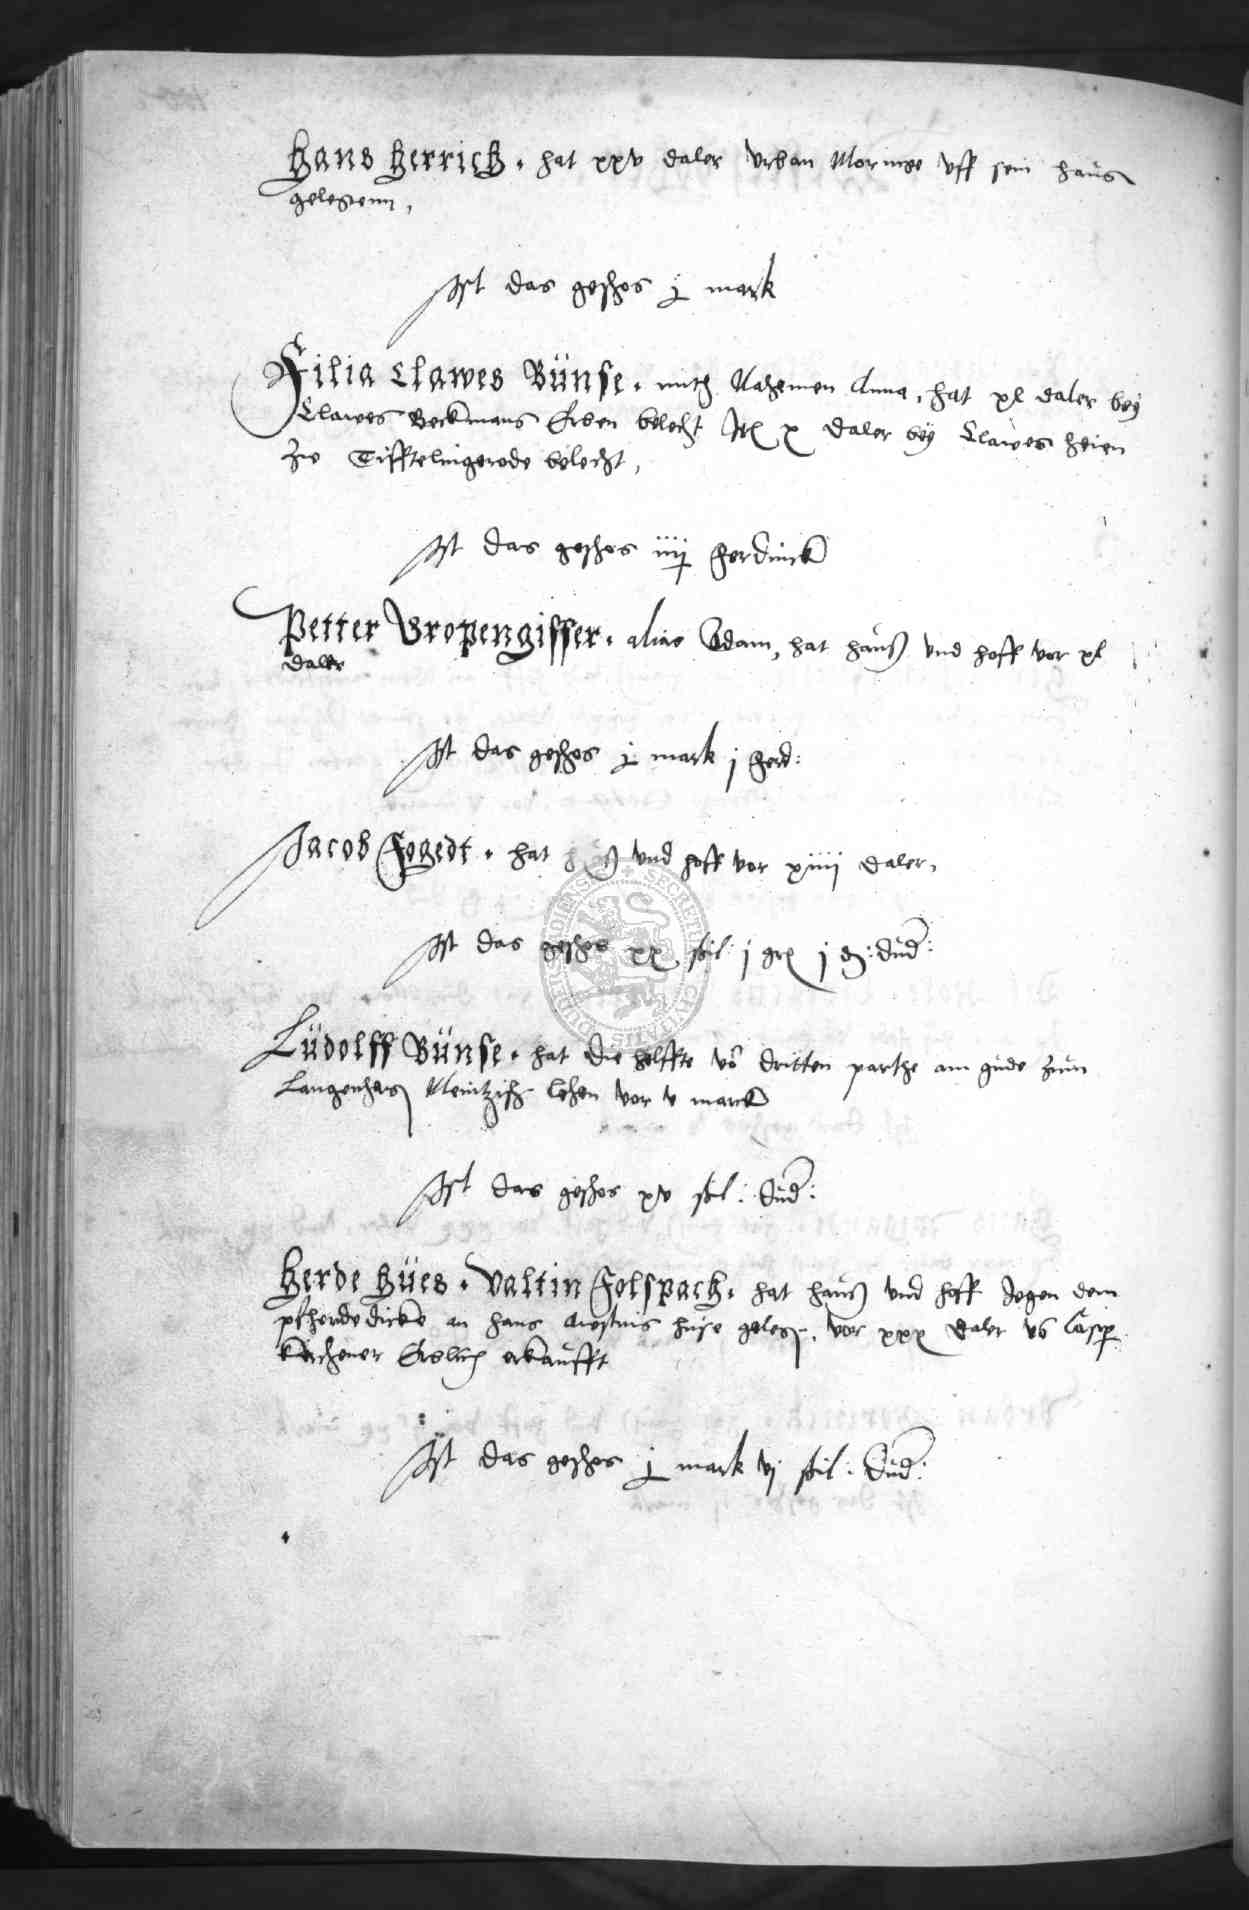 Hans Herrich. hat xxv daler Urban Moringe uff sein haus
gelegenn,
Ist das geschos j mark
Filia Clawes Bünse. mith Nahemen Anna, hat xl daler bey
Clawes Beckmans Erben belecht Item x daler bey Clawes Heien
zu Tifftelingerode belecht,
Ist das geschos iiij ferdinck
Petter Gropengisser. alias Adam, hat hauß und hoff vor xl
daler
Ist das geschos j mark j ferd:
Jacob Fogedt. hat und hoff vor xiiii daler,
Ist das geschos xx sol: j gr j d: dud:
Lüdolff Bünse. hat die helffte us dritten parthe am gude zum
Langenhag lehen vor v marck
Ist das geschos xv sol: dud:
Herde Hües. Valtin Folspach. hat hauß und hoff Jegen dem
pherdedicke an Hans huse geleg, vor xxx daler us Casper
Kirchener Erblich erkaufft
Ist das geschos j mark vj sol: dud:
SECRETUM CIVITATIS DUDERSTADIENSIS